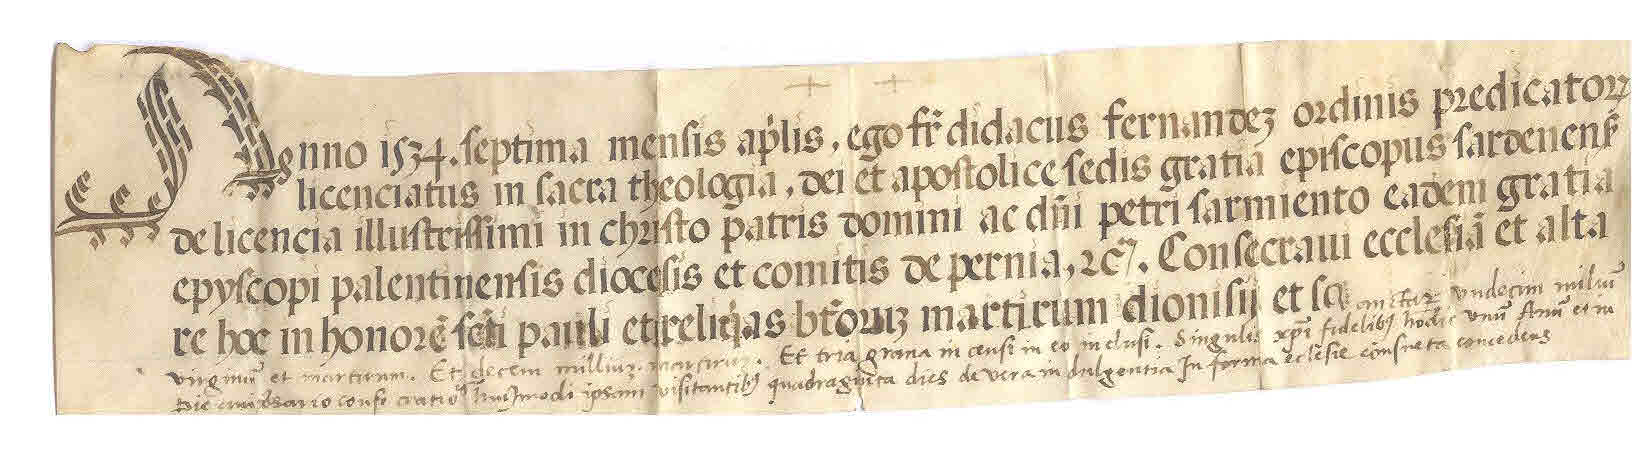 Anno 1534. septima mensis ap̃lis, ego fr̃ didacus fernandez ordinis predicatorꝝ
licenciatus in sacra theologia, dei et apostolice sedis gratia episcopus sardenenẽ
de licencia illustrissimi in christo patris domini ac dñi petri sarmiento eadem gratia
epyscopi palentinensis diocesis et comitis de pernia, ⁊c̃. Consecraui ecclesiã et alta
re hoc in honorẽ sc̃ti pauli et reliq̃as bt̃orum martirum dionisij et sc anctarꝝ vndecim miliũ
virginũ et martirum. Et decem milliuꝝ martirum. Et tria grana in censi in eo inclusi. Singulis xpĩ fidelibꝫ hodie vnũ Anũ et in
Die aniversario consecratiõis huiꝰmodi ipsam visitantibꝫ quadraginta dies de vera indulgentia In forma eclesie consueta concedens